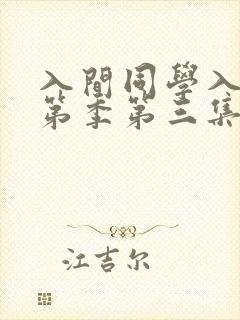 入閒同學入
第季第三集
江吉尔